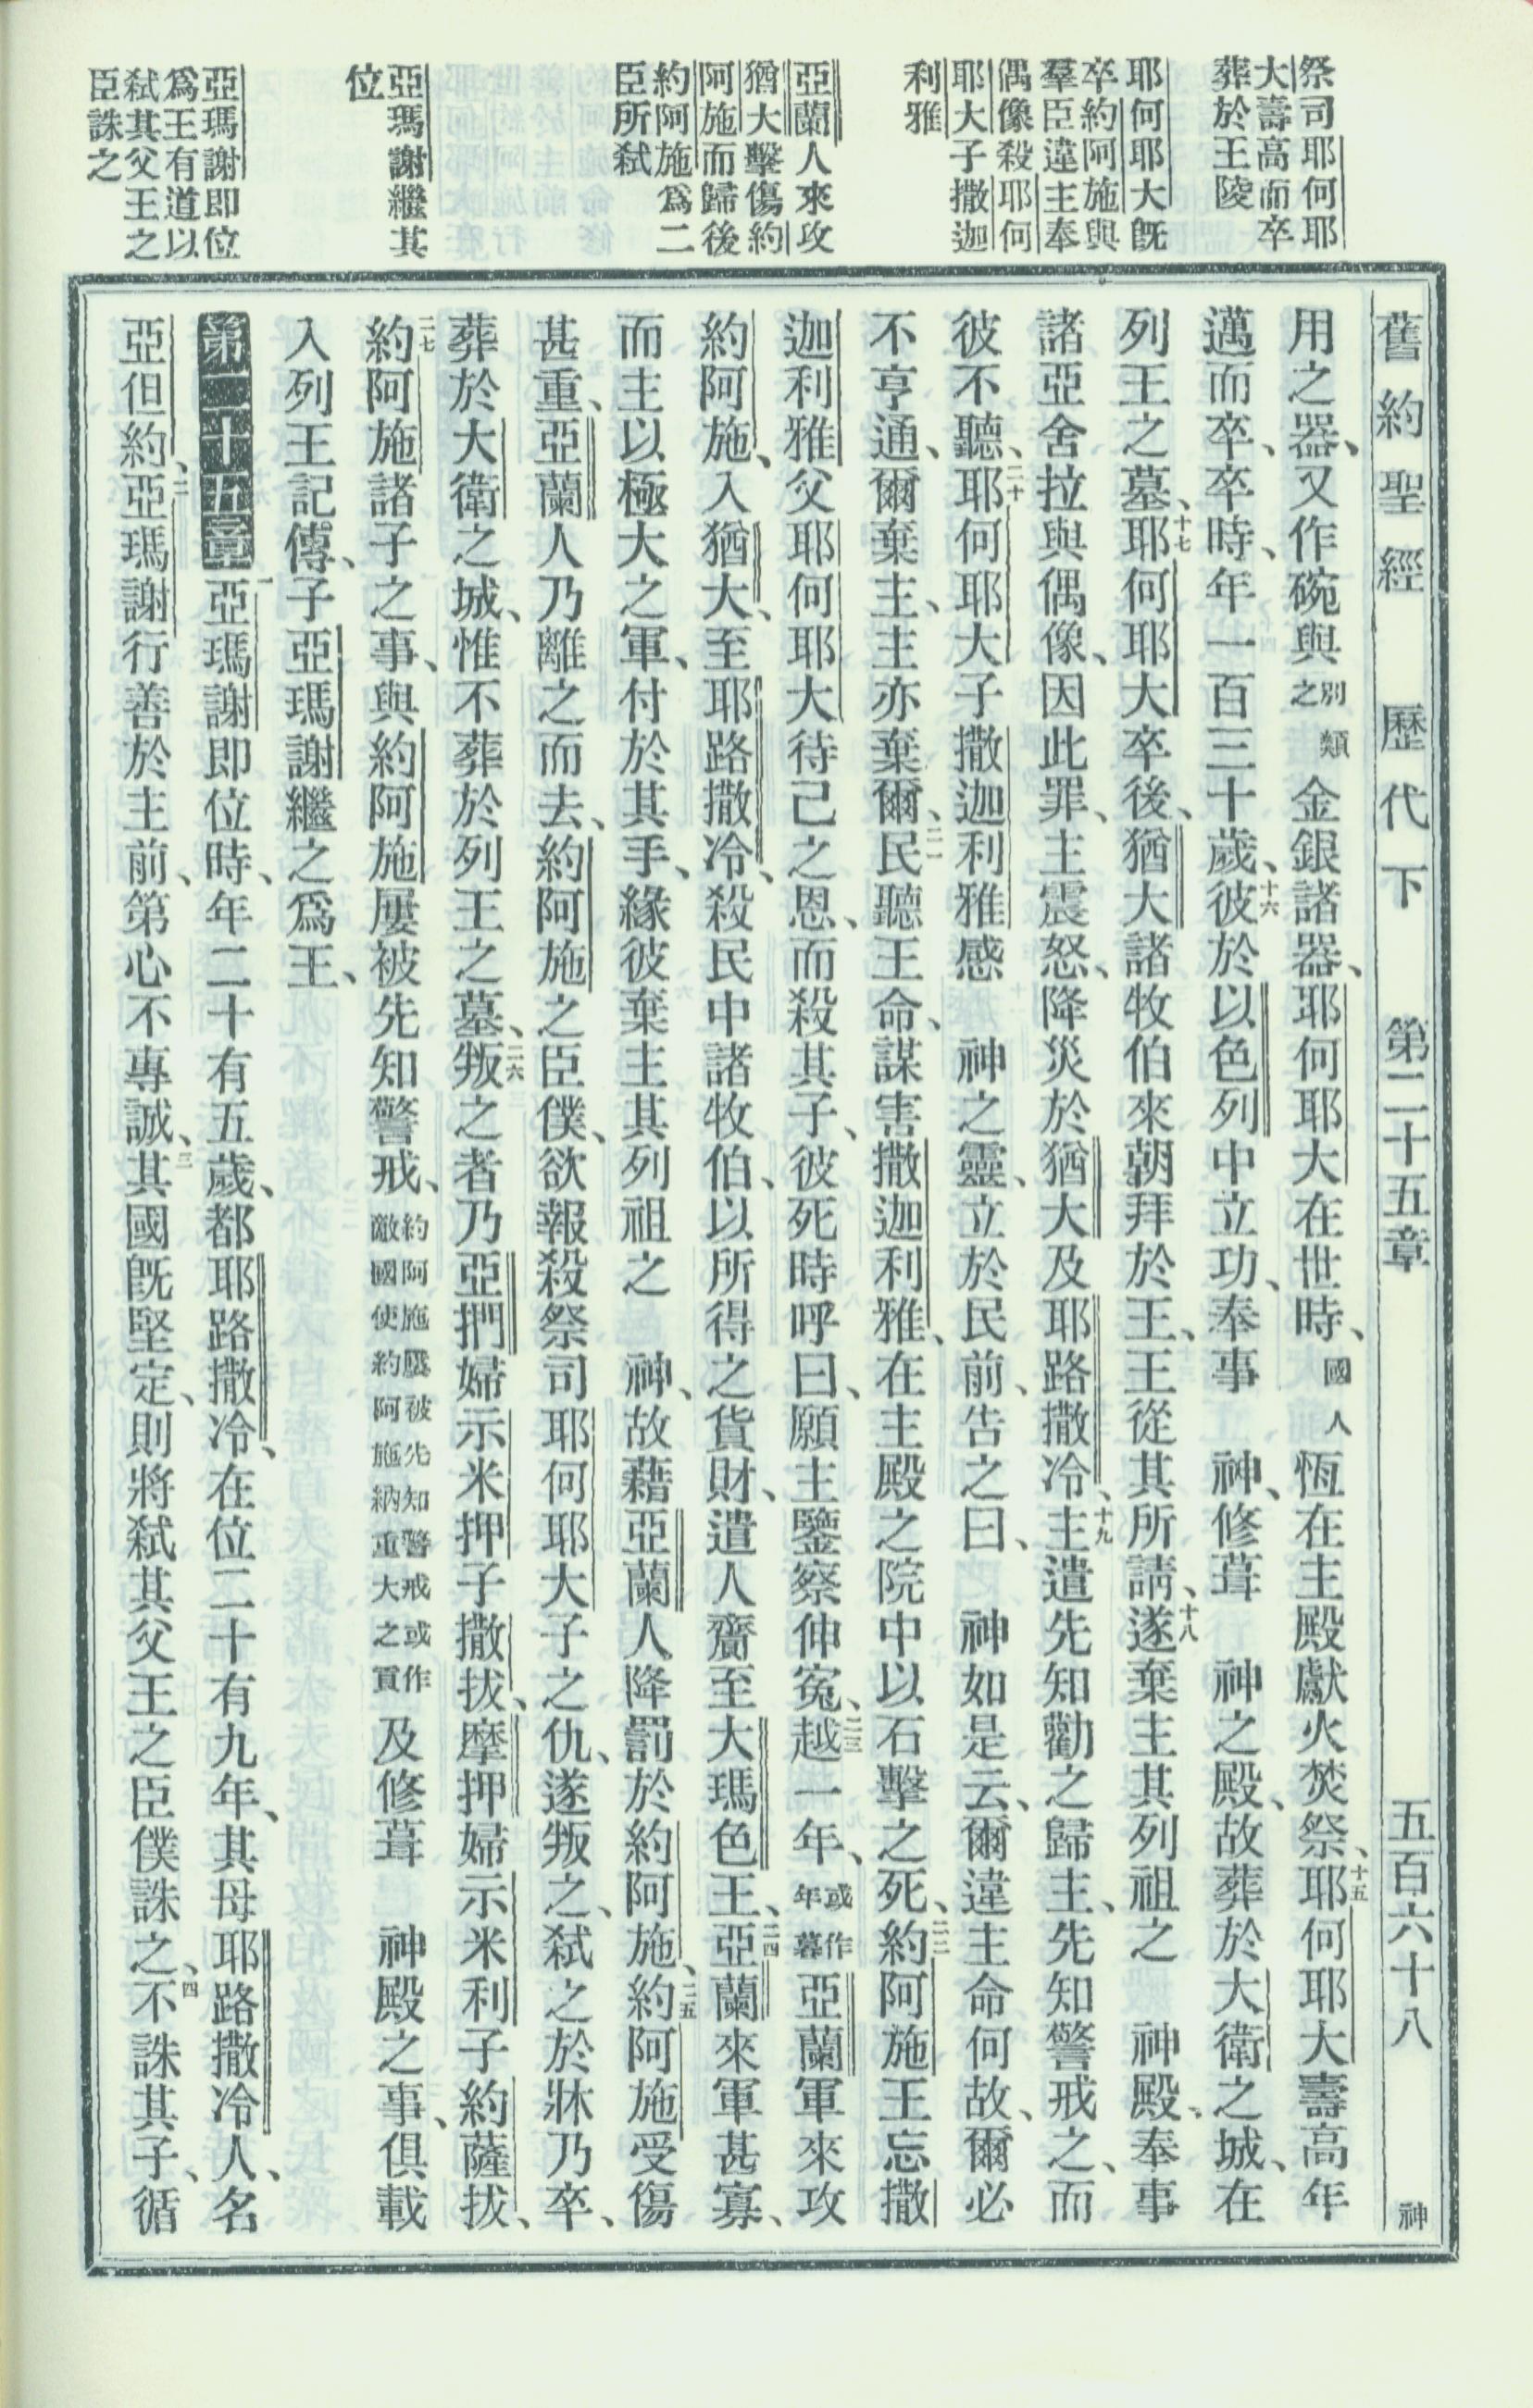 祭司耶何耶
大壽高而卒
葬於王陵
耶何耶大旣
卒約阿施與
羣臣違主奉
偶像殺耶何
耶大子撒迦
利雅
亞蘭人來攻
猶大擊傷約
阿施而歸後
約阿施爲二
臣所弒
亞瑪謝繼其
位
亞瑪謝即位
爲王有道以
弒其父王之
臣誅之
舊約聖經 歷代下 第二十五章 五百六十八 神
用之器、又作碗與別類之金銀諸器、耶何耶大在世時、國人恆在主殿獻火焚祭、十五耶何耶大壽高年
邁而卒、卒時、年一百三十歲、十六彼於以色列中立功、奉事 神、修葺 神之殿、故葬於大衛之城、在
列王之墓、十七耶何耶大卒後、猶大諸牧伯來朝拜於王、王從其所請、十八遂棄主其列祖之 神殿、奉事
諸亞舍拉與偶像、因此罪、主震怒、降災於猶大及耶路撒冷、十九主遣先知勸之歸主、先知警戒之、而
彼不聽、二十耶何耶大子撒迦利雅感 神之靈、立於民前、告之曰、 神如是云、爾違主命何故、爾必
不亨通、爾棄主、主亦棄爾、二一民聽王命、謀害撒迦利雅、在主殿之院中以石擊之死、二二約阿施王忘撒
迦利雅父耶何耶大待己之恩、而殺其子、彼死時呼曰、願主鑒察伸寃、二三越一年、或作年暮亞蘭軍來攻
約阿施、入猶大、至耶路撒冷、殺民中諸牧伯、以所得之貨財、遣人齎至大瑪色王、二四亞蘭來軍甚寡、
而主以極大之軍、付於其手、緣彼棄主其列祖之 神、故藉亞蘭人降罰於約阿施、二五約阿施受傷
甚重、亞蘭人乃離之而去、約阿施之臣僕、欲報殺祭司耶何耶大子之仇、遂叛之、弒之於牀乃卒、
葬於大衛之城、惟不葬於列王之墓、二六叛之者乃亞捫婦示米押子撒拔、摩押婦示米利子約薩拔、
二七約阿施諸子之事、與約阿施屢被先知警戒、約阿施屢被先知警戒或作敵國使約阿施納重大之貢及修葺 神殿之事、俱載
入列王記傳、子亞瑪謝繼之爲王、
第二十五章 一亞瑪謝即位時、年二十有五歲、都耶路撒冷、在位二十有九年、其母耶路撒冷人、名
亞但約、二亞瑪謝行善於主前、第心不專誠、三其國旣堅定、則將弒其父王之臣僕誅之、四不誅其子、循